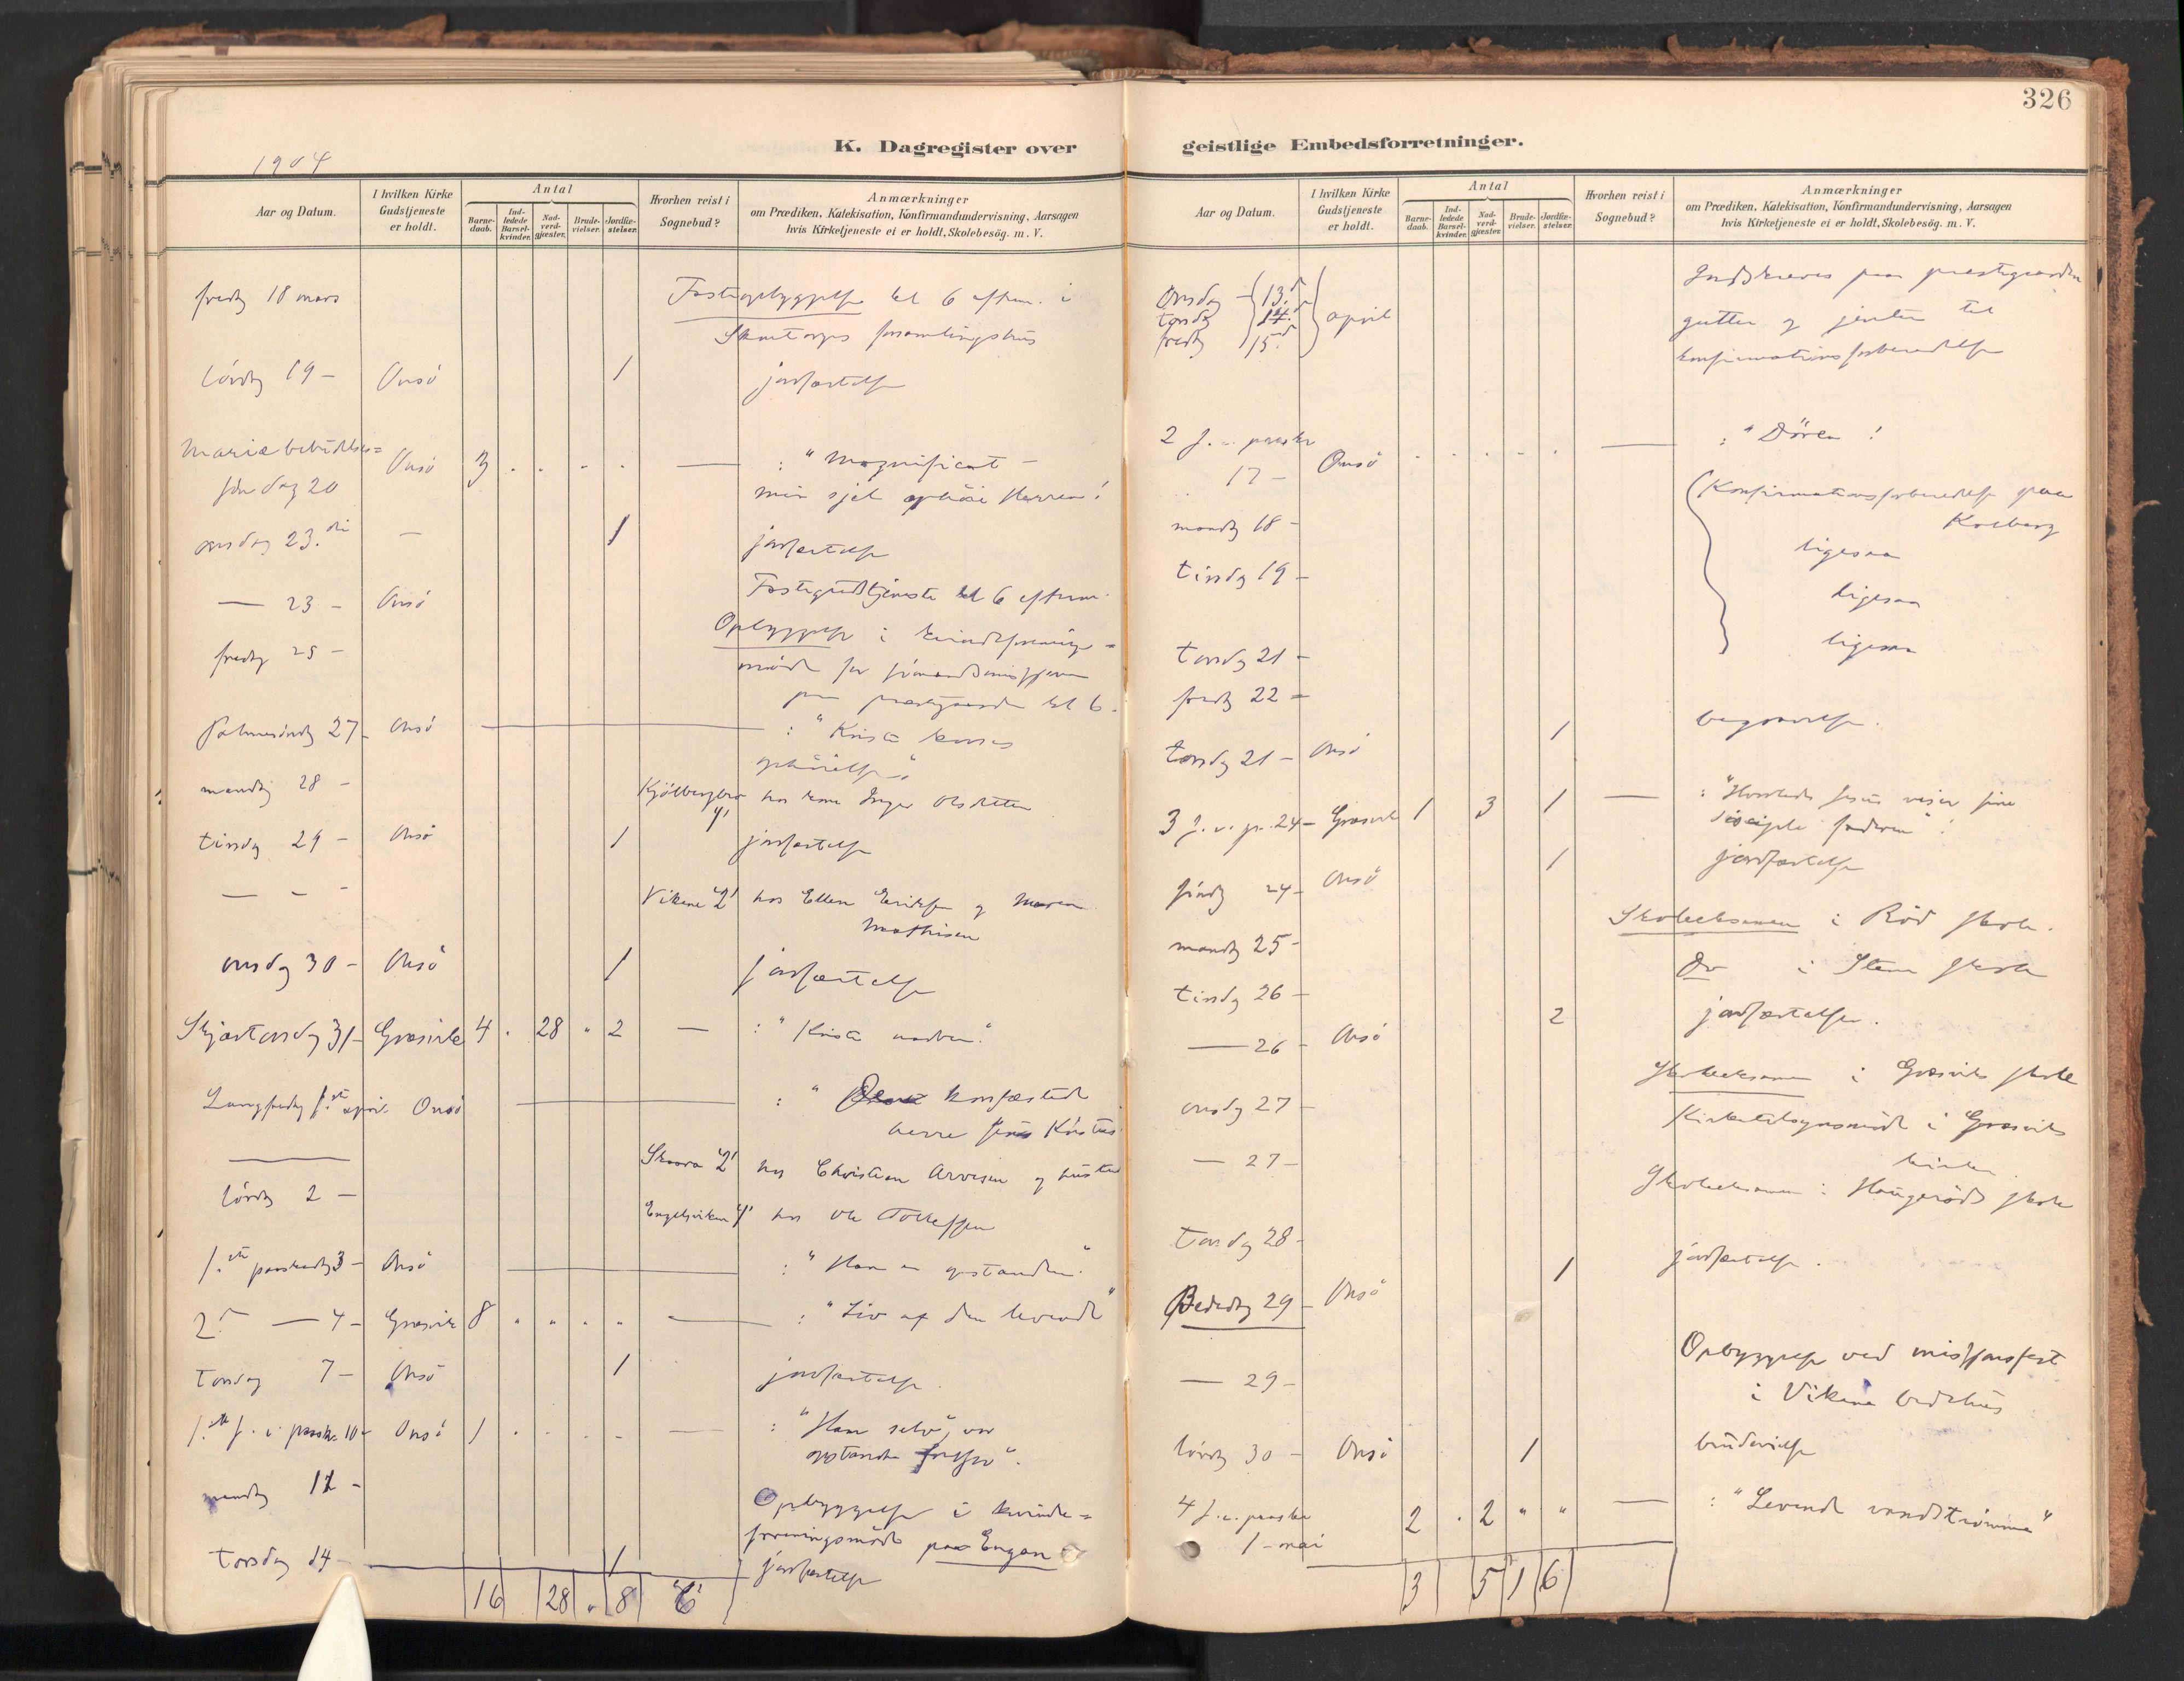 326
K. Dagregister over
geistlige Embedsforretninger.
1904
Aar og Datum.
I hvilken Kirke Gudstjeneste er holdt.
Antal
Barne-daab.
Ind-ledede Barsel-kvinder.
Nad-verd-gjester.
Brude-vielser.
Jordfæ-stelser.
Hvorhen reist i Sognebud?
Anmærkninger
om Prædiken, Katekisation, Konfirmandundervisning, Aarsagen
hvis Kirketjeneste ei er holdt, Skolebesög. m. V.
fredg 18 mars
6 efterm. i
forsamlingshus
lördg 19 – Onsö 1 jordfæstelse
Mariæ bebudelses=
söndag 20 Onsö 3 . . . . — : "Magnificat –
min sjel ophöie Herren!
onsdag 23. – 1 jordfæstelse
— 23 – Onsö Fastegudstjeneste kl 6 efterm.
fredg 25 – Opbyggelse i kvindeforenings=
möde for
paa præstegaarden kl 6.
Palmesöndg 27 – Onsö — : "Kristi korses
ophöielse".
mandg 28 – Kjölbergbro 1 hos kone Inger Olsdatter
tirsdg 29 – Onsö 1 jordfæstelse
— – – Vikene 2 hos Ellen og Maren
Mathisen
onsdg 30 – Onsö 1 jordfæstelse
Skjærtorsdg 31 – Græsvik 4 . 28 " 2 — : "Kristi nadver."
Langfredg 1. april Onsö — : " korsfæstede
herre Jesus Kristus
— Skaara 2 hos Christian Arvesen og hustru
lördg 2 – Engelsviken 1 hos Ole Tollefsen
1. paaskedg 3 – Onsö — : "Han er opstanden."
2. — 4 – Græsvik 8 " " . " — : "Liv af den levende"
Torsdag 7 – Onsö 1 jordfæstelse.
1. s. e. paaske 10 – Onsö 1 . . . . — : "Han selv", vor
opstandne frelser".
mandg 11 – Opbyggelse i kvinde=
foreningsmöde paa Engen
torsdag 14 – 1 jordfæstelse
16 28 " 8 6
Aar og Datum.
I hvilken Kirke Gudstjeneste er holdt.
Antal
Barne-daab.
Ind-ledede Barsel-kvinder.
Nad-verd-gjester.
Brude-vielser.
Jordfæ-stelser.
Hvorhen reist i Sognebud?
Anmærkninger
om Prædiken, Katekisation, Konfirmandundervisning, Aarsagen
hvis Kirketjeneste ei er holdt, Skolebesög. m. V.
Onsdag – 13. Indskreves paa præstegaarden
torsdg 14. april gutter og jenter til
fredg 15. konfirmationsforberedelse
2 s. e. paaske
17 – Onsö . . . . . — : "Dören!
mandg 18 – Konfirmationsforberedelse paa
Kolberg
tirsdg 19 – ligesaa
torsdg 21 – ligesaa
fredg 22 – ligesaa
torsdg 21 – Onsö 1 begravelse.
3 s. e. p. 24 – Græsvik 1 3 1 — : "Hvorledes Jesus viser sine
disciple faderen"!
söndg 24 – Onsö 1 jordfæstelse
mandg 25 – Skoleeksamen i Röd skole.
tirsdg 26 – Do i Stene skole
— 26 – Onsö 2 jordfæstelser.
onsdg 27 – Skoleeksamen i Græsviks skole
— 27 – Kirketilsynsmöde i Græsviks
kirke
torsdg 28 – Skoleeksamen i Haugeröds skole
Bededag 29 – Onsö 1 jordfæstelse.
— 29 – Opbyggelse ved missjonsfest
i Vikene bedehus
lördg 30 – Onsö 1 brudevielse
4 s. e. paaske
1 – mai 2 . 2 " " — : "Levende vandströmme"
3 5 1 6